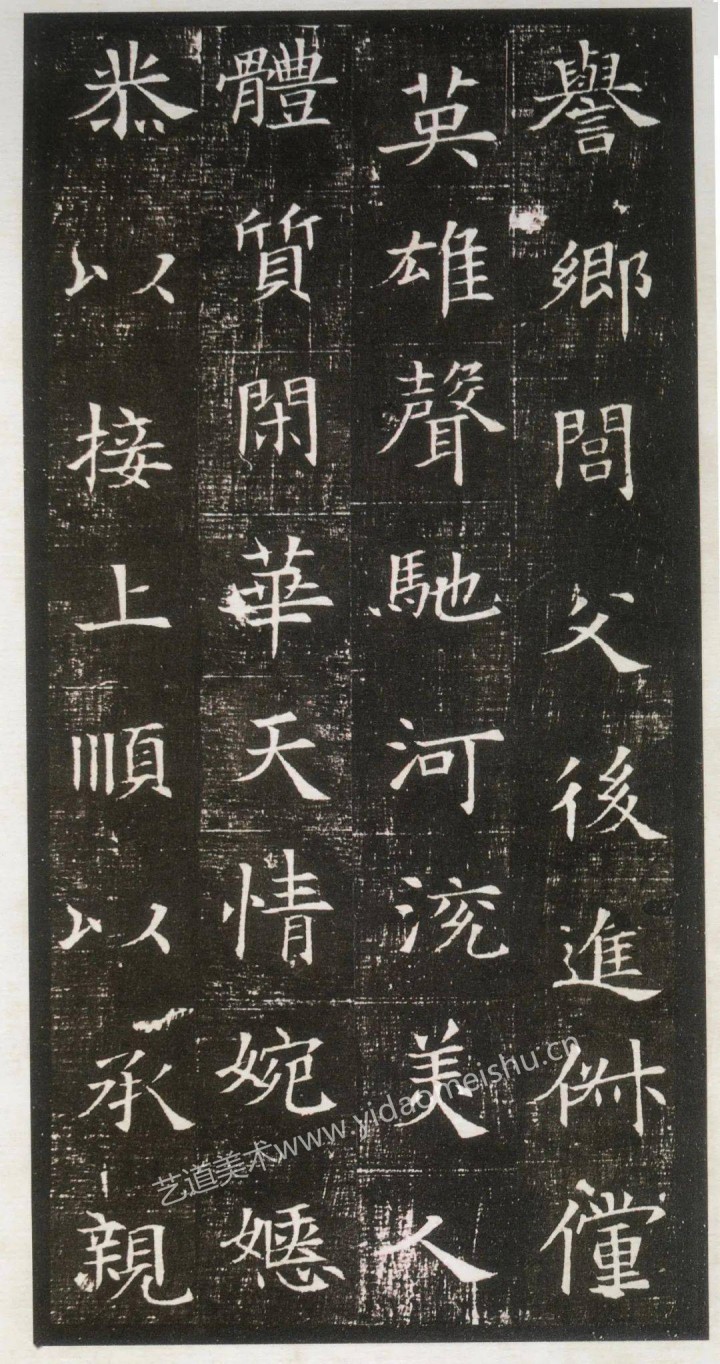 譽鄉閭父後進俶儻
英雄聲馳河沇美人
體質閑華天情婉嫕
恭以接上順以承親
艺道美术www.yidaomeishu.cn